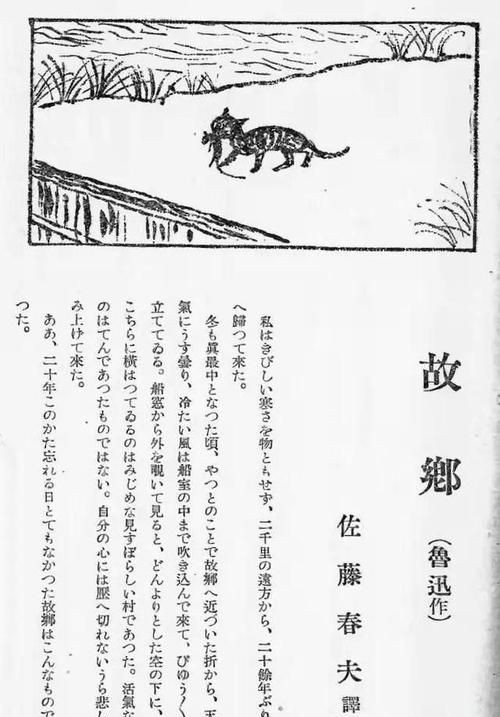 故鄕
(魯迅作)
佐藤春夫譯
私はきびしい寒さを物ともせず、二千里の遠方から、二十餘年ぶり
へ歸つて來た。
冬も眞最中となつた頃、やつとのことで故鄕へ近づいた折から、天
氣にうす曇り、冷たい風は船室の中まで吹き込んで來て、ぴゆう〱
立ててゐる。船窓から外を覗いて見ると、どんよりとした空の下に、
こちらに橫はつてゐるのはみじめな見すぼらしい村であつた。活氣な
のはてんであつたものではない。自分の心には壓へ切れないうら悲し
み上けて來た。
ああ、二十年このかた忘れる日とてもなかつた故鄕はこんなもので
つた。